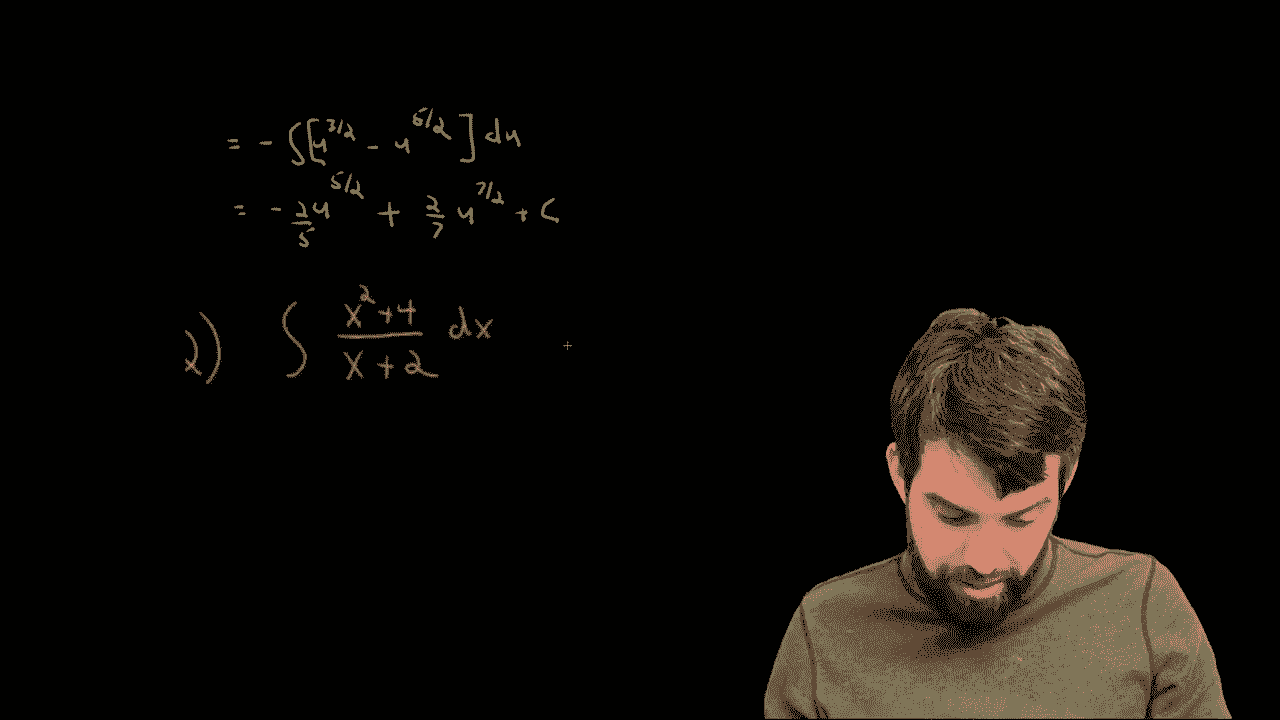 = - ∫[u^{3/2} - u^{5/2}] du
= - \frac{2}{5} u^{5/2} + \frac{2}{7} u^{7/2} + C
2) ∫ \frac{x^2+4}{x+2} dx